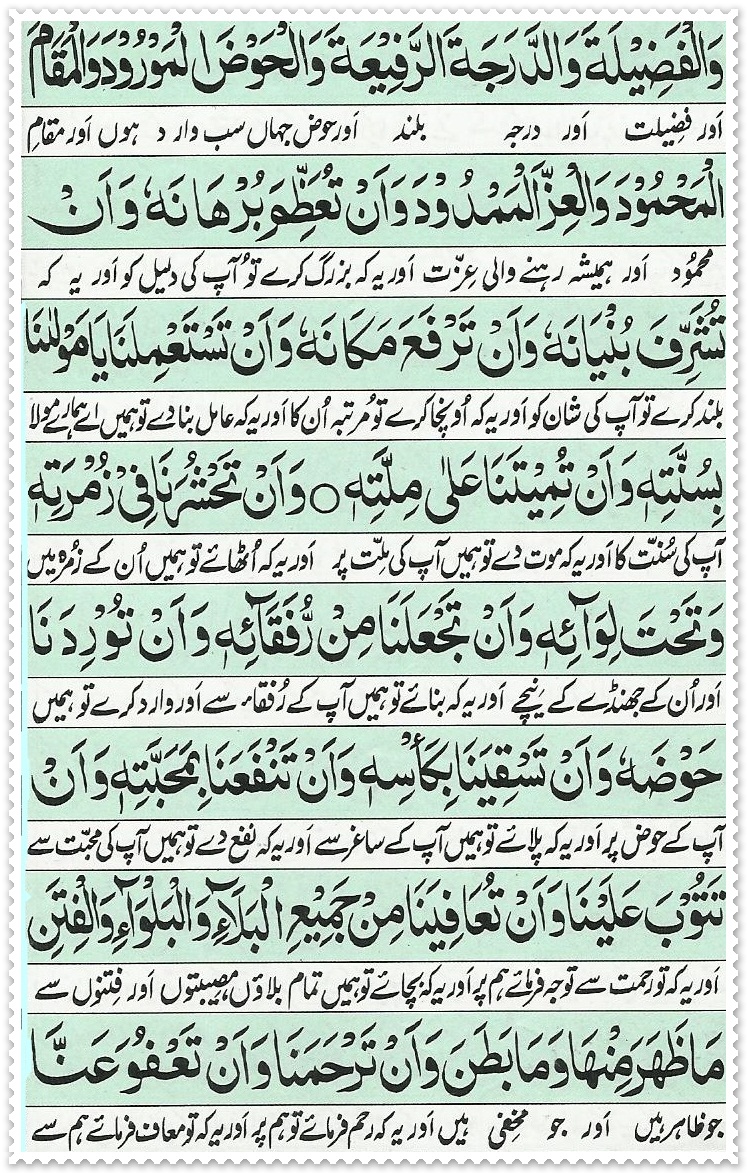 وَالْفَضِيْلَةَ وَالدَّرَجَةَ الرَّفِيْعَةَ وَالْحَوْضَ الْمَوْرُوْدَ وَالْمَقَامَ
اَور فِضیلت اَور درجہ بلند اَور حوض جہاں سب وارد ہوں اَور مقامِ
الْمَحْمُوْدَ وَالْعِزَّ الْمَمْدُوْدَ وَاَنْ تُعَظِّمَ بُرْهَانَهٗ وَاَنْ
محمُود اَور ہمیشہ رہنے والی عِزّت اَور یہ کہ بزرگ کرے تُو آپ کی دلیل کو اَور یہ کہ
تُشَرِّفَ بُنْيَانَهٗ وَاَنْ تَرْفَعَ مَكَانَهٗ وَاَنْ تَسْتَعْمِلَنَا يَا مَوْلٰنَا
بلند کرے تو آپ کی شان کو اَور یہ کہ اُونچا کرے تو مرتبہ اُن کا اَور یہ کہ عامل بنا دے تو ہمیں اے ہمارے مولا
بِسُنَّتِهٖ وَاَنْ تُمِيْتَنَا عَلٰى مِلَّتِهٖ ○ وَاَنْ تَحْشُرَنَا فِيْ زُمْرَتِهٖ
آپ کی سُنّت کا اَور یہ کہ موت دے تو ہمیں آپ کی مِلّت پر اَور یہ کہ اُٹھائے تو ہمیں اُن کے زُمرہ میں
وَتَحْتَ لِوَآئِهٖ وَاَنْ تَجْعَلَنَا مِنْ رُّفَقَآئِهٖ وَاَنْ تُوْرِدَنَا
اَور اُن کے جھنڈے کے نیچے اَور یہ کہ بنائے تو ہمیں آپ کے رُفقاء سے اَور وارد کرے تو ہمیں
حَوْضَهٗ وَاَنْ تَسْقِيَنَا بِكَأْسِهٖ وَاَنْ تَنْفَعَنَا بِمَحَبَّتِهٖ وَاَنْ
آپ کے حوض پر اَور یہ کہ پلائے تو ہمیں آپ کے ساغر سے اَور یہ کہ نفع دے تو ہمیں آپ کی محبّت سے
تَتُوْبَ عَلَيْنَا وَاَنْ تُعَافِيَنَا مِنْ جَمِيْعِ الْبَلَآءِ وَالْبَلْوَآءِ وَالْفِتَنِ
اَور یہ کہ تو رحمت سے توجہ فرمائے ہم پر اَور یہ کہ بچائے تو ہمیں تمام بلاؤں، مصیبتوں اَور فِتنوں سے
مَا ظَهَرَ مِنْهَا وَمَا بَطَنَ وَاَنْ تَرْحَمَنَا وَاَنْ تَعْفُوَ عَنَّا
جو ظاہر ہیں اَور جو مخفی ہیں اَور یہ کہ رحم فرمائے تو ہم پر اَور یہ کہ تو معاف فرمائے ہم سے